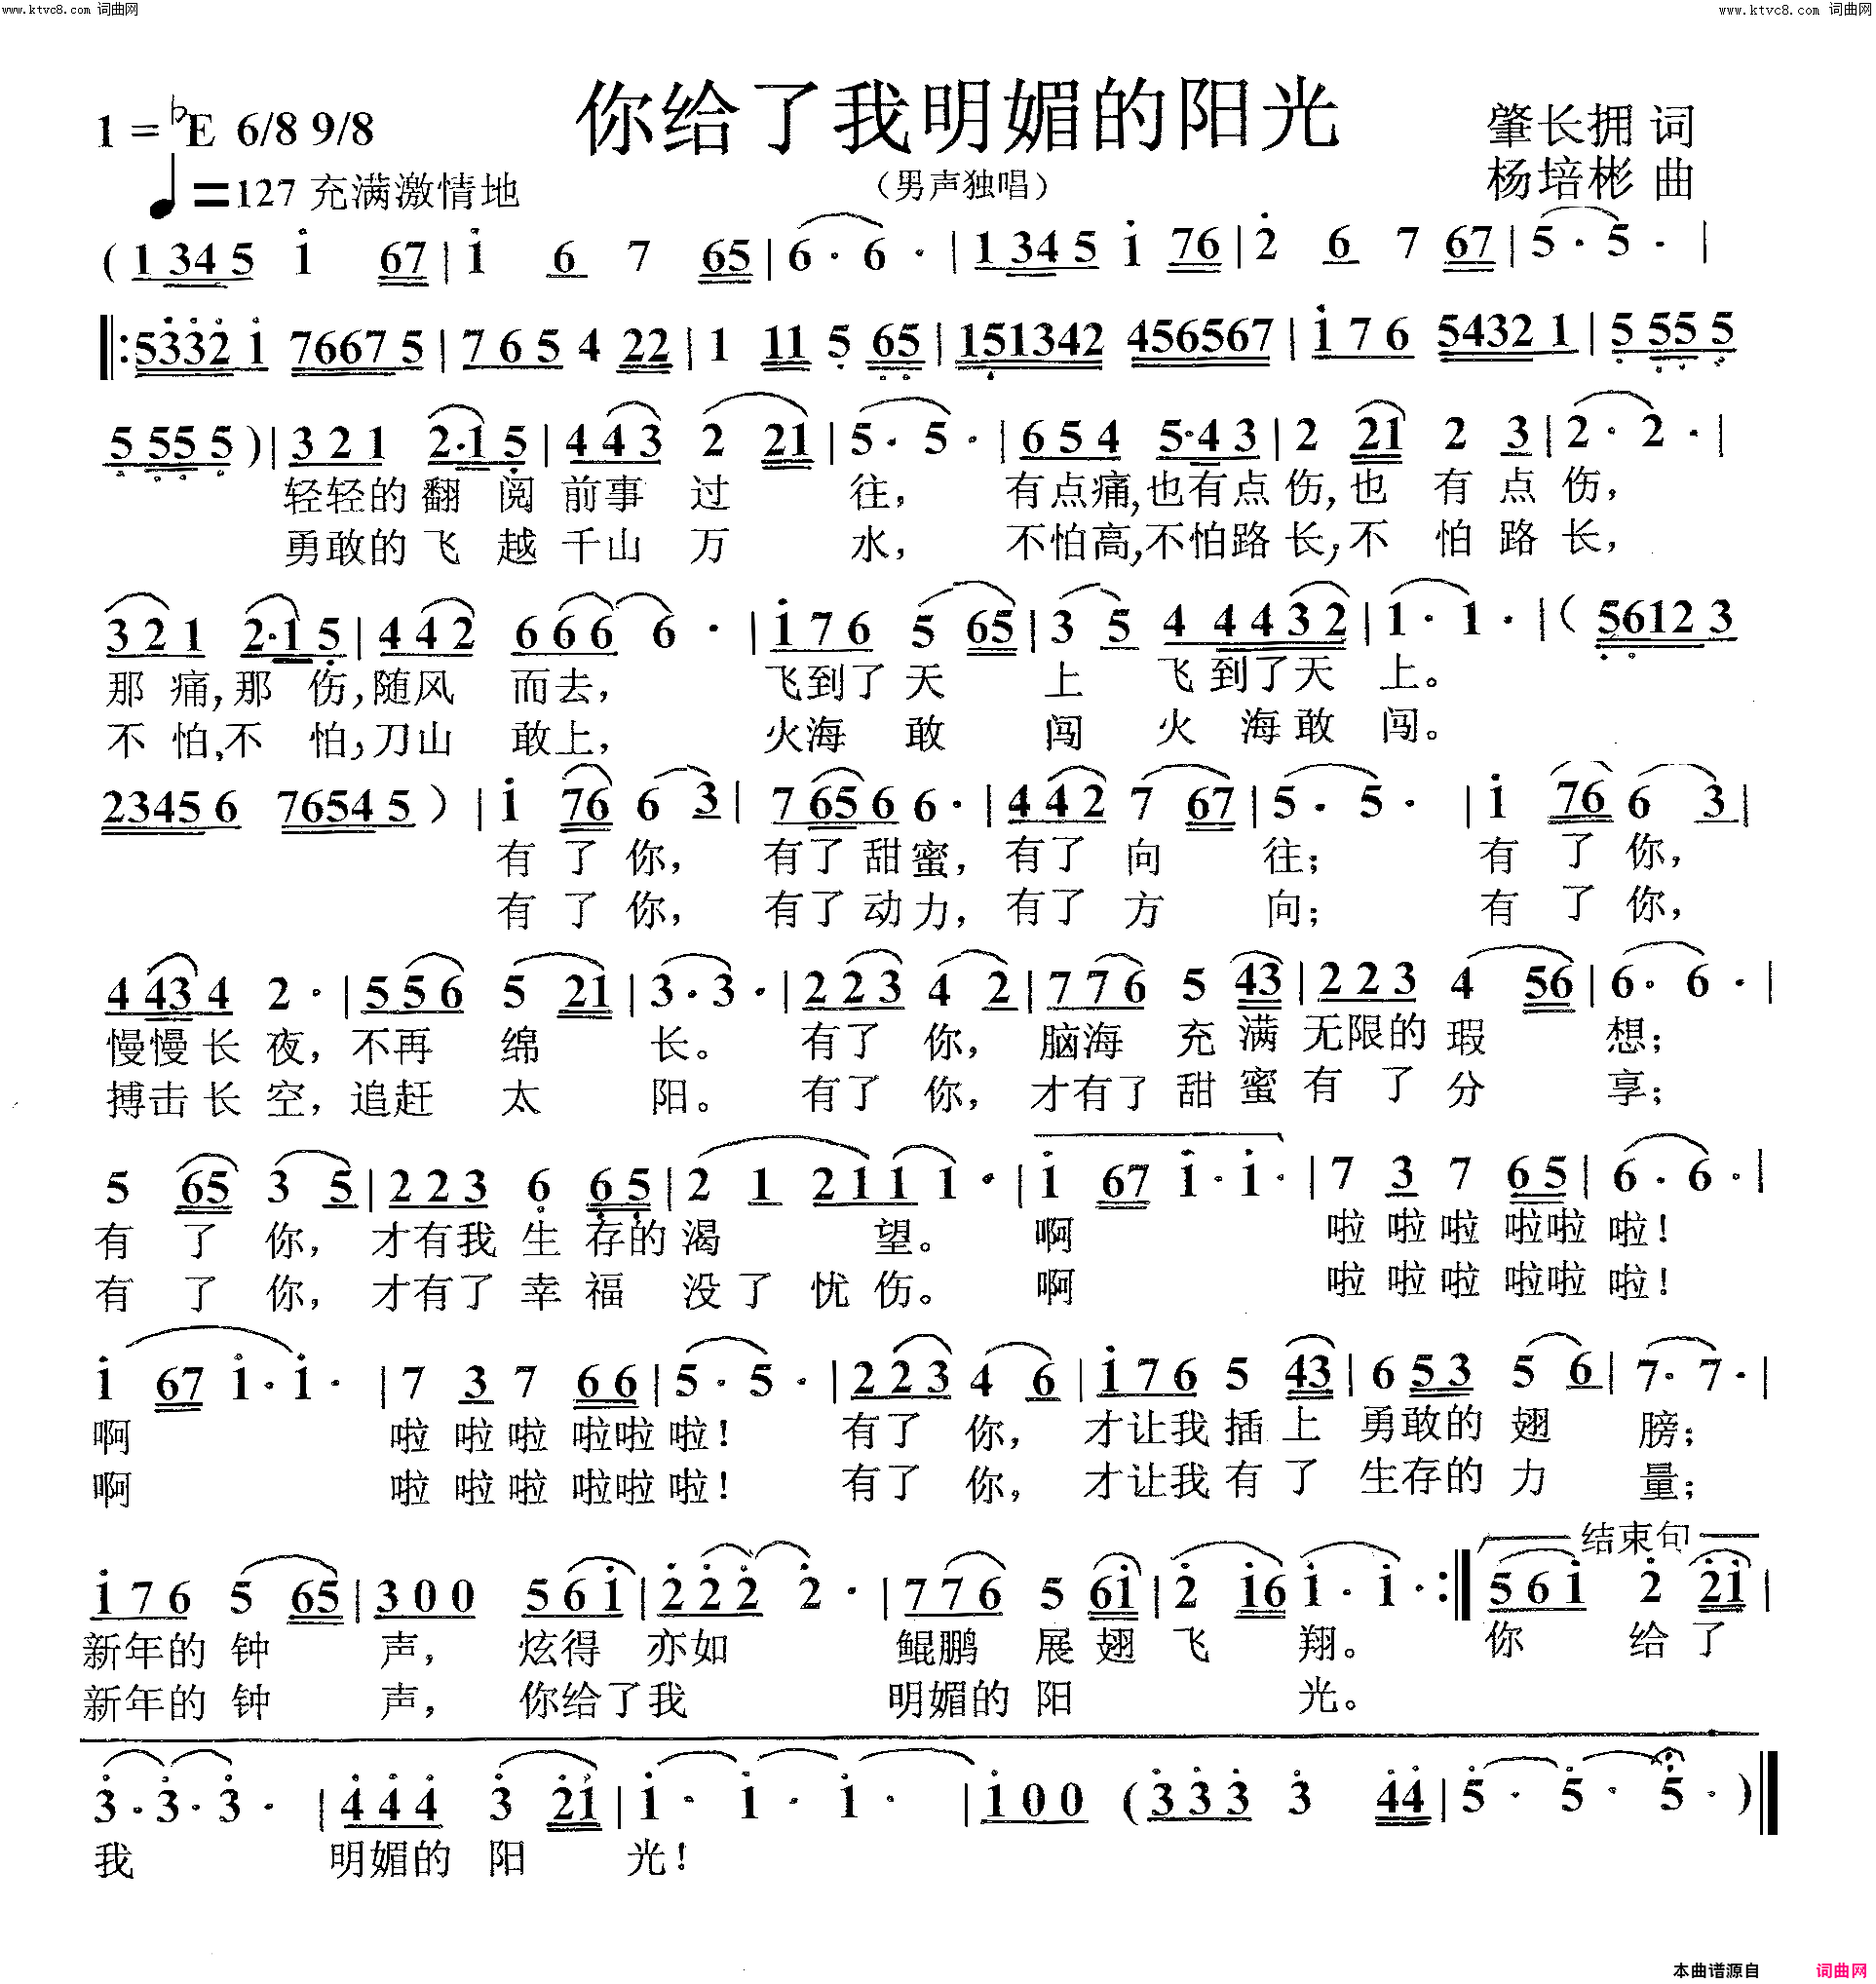 www.ktvc8.com 词曲网
www.ktvc8.com 词曲网
你给了我明媚的阳光
1=♭E 6/8 9/8
♩=127 充满激情地
（男声独唱）
肇长拥 词
杨培彬 曲
( 1 34 5 i 67 | i 6 7 65 | 6 · 6 · | 1 34 5 i 76 | 2 6 7 67 | 5 · 5 · |
‖: 5332 i 7667 5 | 7 6 5 4 22 | 1 11 5 65 | 151342 456567 | i 7 6 5432 1 | 5 55 5
5 55 5 ) | 3 2 1 2·1 5 | 4 4 3 2 21 | 5 · 5 · | 6 5 4 5·4 3 | 2 21 2 3 | 2 · 2 · |
轻轻的翻 阅 前事 过 往， 有点痛,也有点伤,也 有点伤，
勇敢的飞 越 千山 万 水， 不怕高,不怕路长,不 怕路长，
3 2 1 2·1 5 | 4 4 2 6 6 6 6 · | i 7 6 5 65 | 3 5 4 4 4 3 2 | 1 · 1 · | ( 5612 3
那 痛,那 伤,随风 而去， 飞到了天 上 飞到了天 上。
不 怕,不 怕,刀山 敢上， 火海 敢 闯 火 海敢 闯。
2345 6 7654 5 ) | i 76 6 3 | 7 65 6 6 · | 4 4 2 7 67 | 5 · 5 · | i 76 6 3 |
有 了 你， 有了甜蜜，有了 向 往； 有 了 你，
有 了 你， 有了动力，有了 方 向； 有 了 你，
4 43 4 2 · | 5 5 6 5 21 | 3 · 3 · | 2 2 3 4 2 | 7 7 6 5 43 | 2 2 3 4 56 | 6 · 6 · |
慢慢长 夜，不再 绵 长。 有了 你， 脑海 充 满 无限的 瑕 想；
搏击长 空，追赶 太 阳。 有了 你， 才有了 甜 蜜 有 了 分 享；
5 65 3 5 | 2 2 3 6 6 5 | 2 1 2 1 1 1 · | i 67 i · i · | 7 3 7 6 5 | 6 · 6 · |
有 了 你， 才有我 生 存的 渴 望。 啊 啦 啦 啦 啦啦 啦！
有 了 你， 才有了 幸 福 没 了 忧 伤。 啊 啦 啦 啦 啦啦 啦！
i 67 i · i · | 7 3 7 6 6 | 5 · 5 · | 2 2 3 4 6 | i 7 6 5 43 | 6 5 3 5 6 | 7 · 7 · |
啊 啦 啦 啦 啦啦 啦！ 有了 你， 才让我 插 上 勇敢的 翅 膀；
啊 啦 啦 啦 啦啦 啦！ 有了 你， 才让我 有 了 生存的 力 量；
结束句
i 7 6 5 65 | 3 0 0 5 6 i | 2 2 2 2 · | 7 7 6 5 6i | 2 i6 i · i · :‖ 5 6 i 2 2i |
新年的 钟 声， 炫得 亦如 鲲鹏 展 翅 飞 翔。 你 给 了
新年的 钟 声， 你给了我 明媚的 阳 光。
3 · 3 · 3 · | 4 4 4 3 2i | i · i · i · | i 0 0 ( 3 3 3 3 44 | 5 · 5 · 5 · ) ‖
我 明媚的 阳 光！
本曲谱源自 词曲网